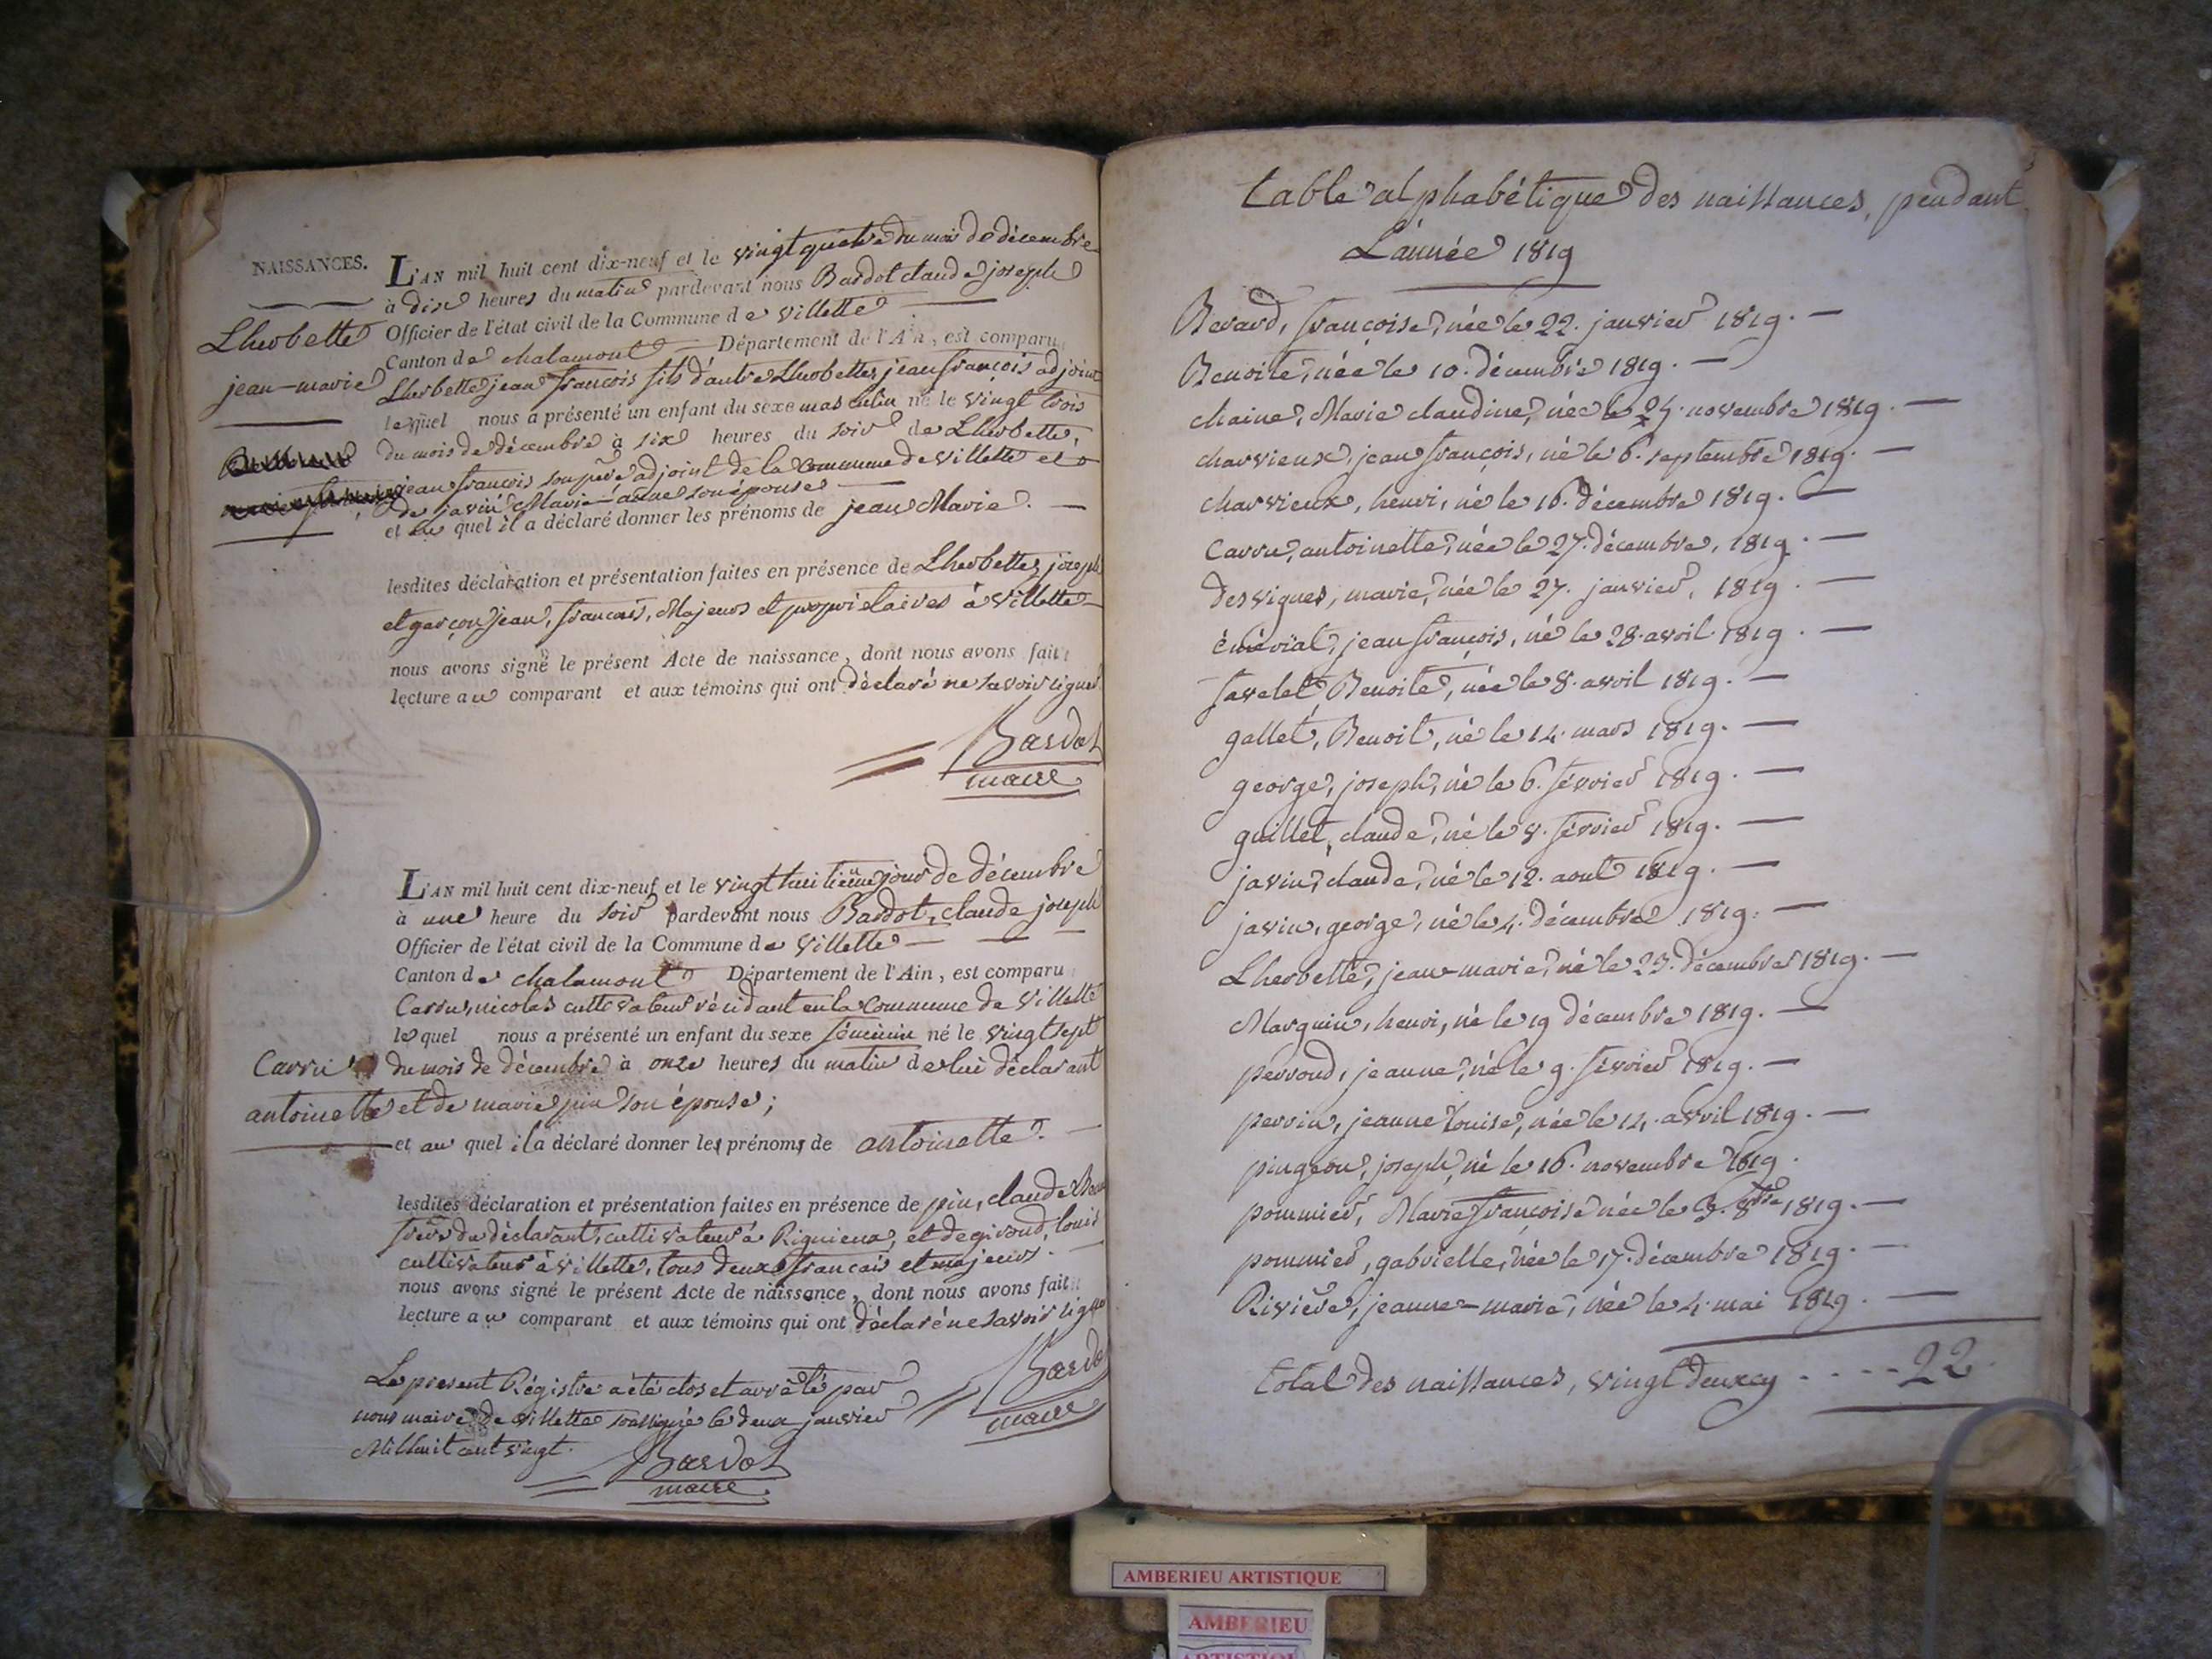 NAISSANCES.
L'AN mil huit cent dix-neuf et le vingt quatre du mois de décembre
à dix heures du matin pardevant nous Bardot claude joseph
Officier de l'état civil de la Commune de villette
Canton de chalamont Département de l'Ain, est comparu
Lherbette jean françois fils d'autre Lherbette, jean françois adjoint
lequel nous a présenté un enfant du sexe masculin né le vingt trois
du mois de décembre à six heures du soir de Lherbette,
jean françois son père adjoint de la commune de villette et
de javin Marie-anne son épouse
et au quel il a déclaré donner les prénoms de jean Marie.
Lherbette
jean-marie
lesdites déclaration et présentation faites en présence de Lherbette, joseph
et garçon jean, francais, Majeurs et propriétaires à villette
nous avons signé le présent Acte de naissance, dont nous avons fait
lecture au comparant et aux témoins qui ont déclaré ne savoir signer
Bardot
maire
L'AN mil huit cent dix-neuf et le vingt huitième jour de décembre
à une heure du soir pardevant nous Bardot, claude joseph
Officier de l'état civil de la Commune de villette
Canton de chalamont Département de l'Ain, est comparu
Carru, nicolas cultivateur résidant en la commune de villette
lequel nous a présenté un enfant du sexe féminin né le vingt sept
du mois de décembre à onze heures du matin de lui déclarant
et de marie pin son épouse;
et au quel il a déclaré donner les prénoms de antoinette.
Carru
antoinette
lesdites déclaration et présentation faites en présence de pin, claude
frère du déclarant, cultivateur à Rignieux, et de giroud, louis
cultivateur à villette, tous deux francais et majeurs.
nous avons signé le présent Acte de naissance, dont nous avons fait
lecture au comparant et aux témoins qui ont déclaré ne savoir signer
Bardot
maire
Le present Régistre a été clos et arrêté par
nous maire de villette soussigné le deux janvier
Mil huit cent vingt.
Bardot
maire
table alphabétique des naissances, pendant
L'année 1819
Berard, françoise, née le 22. janvier 1819.
Benoite, née le 10. décembre 1819.
chaine, Marie claudine, née le 24. novembre 1819.
charvieux, jean françois, né le 6. septembre 1819.
charvieux, henri, né le 16. décembre 1819.
Carru, antoinette, née le 27. décembre, 1819.
desvignes, marie, née le 27. janvier, 1819.
jean françois, né le 28. avril 1819.
favelet, Benoite, née le 8. avril 1819.
gallet, Benoit, né le 14. mars 1819.
george, joseph, né le 6. février 1819.
guillet, claude, né le 8. février 1819.
javin, claude, né le 12. aout 1819.
javin, george, né le 4. décembre 1819.
Lherbette, jean-marie, né le 23. décembre 1819.
Marguin, henri, né le 19 décembre 1819.
perroud, jeanne, né le 9. février 1819.
perrin, jeanne Louise, née le 14. avril 1819.
pingeon, joseph, né le 16. novembre 1819.
pommier, Marie françoise née le 3. 8bre 1819.
pommier, gabrielle, née le 17. décembre 1819.
Rivière, jeanne-marie, née le 4. mai 1819.
total des naissances, vingt deux cy .... 22
AMBERIEU ARTISTIQUE
AMBERIEU
ARTISTIQUE